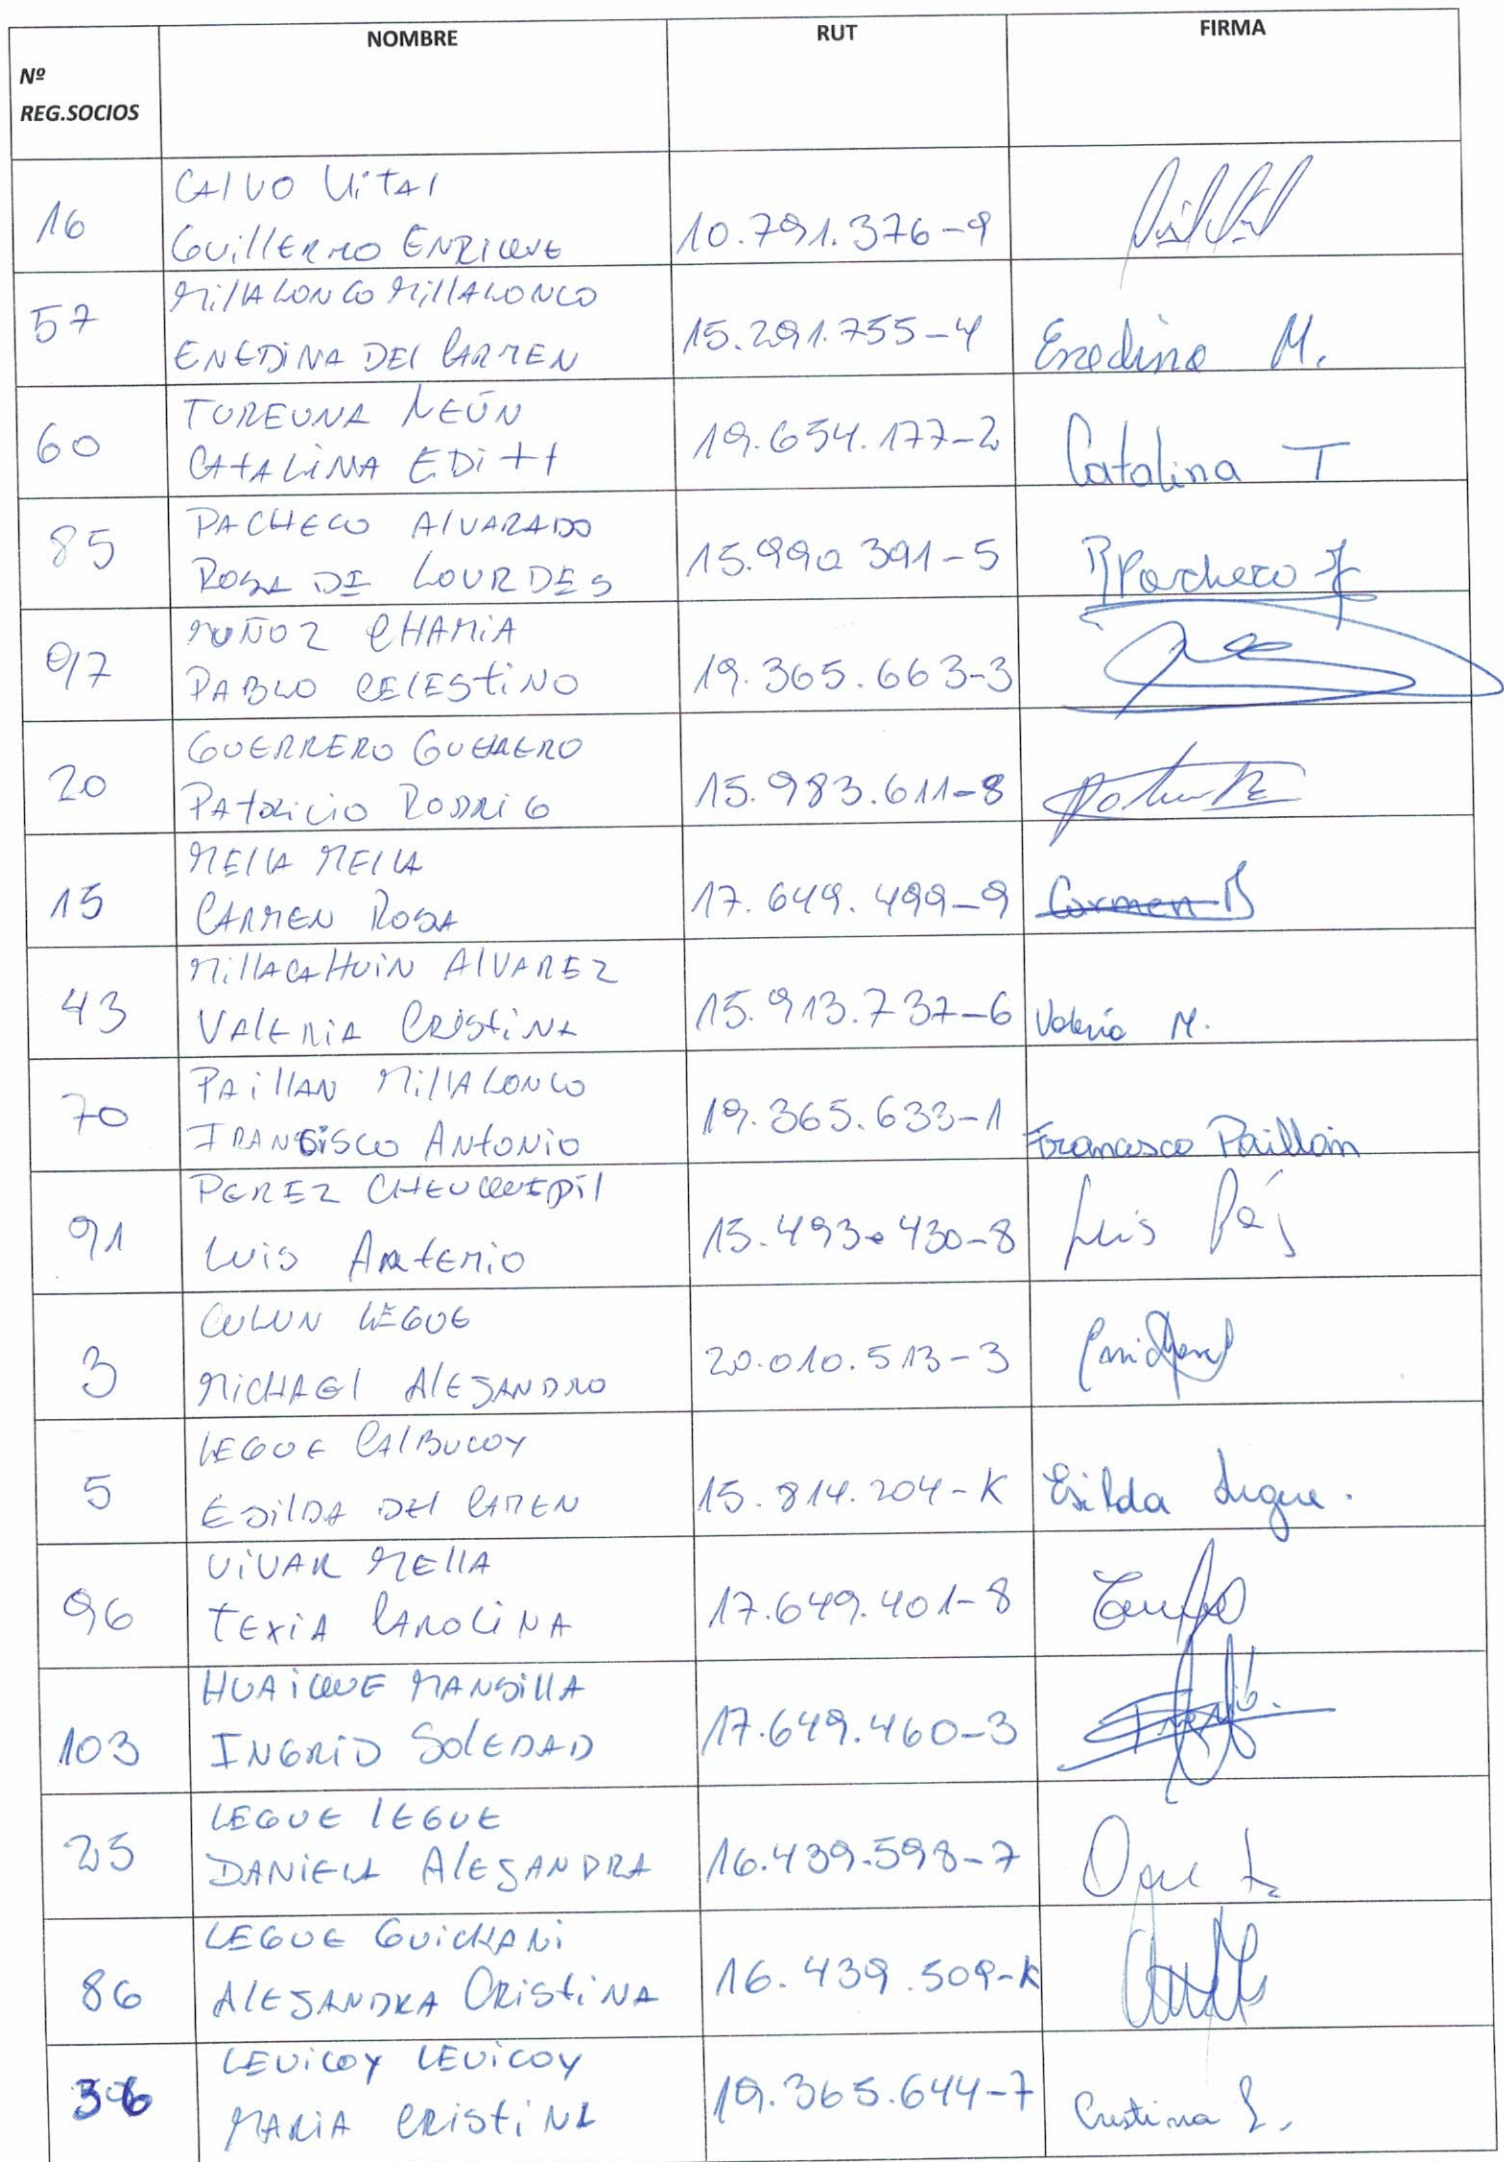 NOMBRE RUT FIRMA
Nº
REG.SOCIOS
CAlVO ViTAl
16 GuillERMO ENRIQUE 10.791.376-9
MillALONCO MillALONCO
57 ENEDiNA DEl CARMEN 15.291.755-4 Enedina M.
TUREUNA NEÚN
60 CATALiNA EDiTH 19.654.177-2 Catalina T
PACHECO AlVARADO
85 ROSA DE LOURDES 15.990 391-5 RPacheco
MUÑOZ CHAMiA
97 PABLO CELEStiNO 19.365.663-3
GUERRERO GUERRERO
20 PAtRiCiO RODRiG 15.983.611-8
MEllA MEllA
15 CARMEN ROSA 17.649.499-9 Carmen
MillACAHUiN AlVAREZ
43 VAlERiA CRiStiNA 15.913.737-6 Valeria M.
PAillAN MillALONCO
70 FRANSiSCO ANtONiO 19.365.633-1 Francisco Paillan
PEREZ CHEUQUEPil
91 LUiS ARtEMiO 15.493.430-8 Luis
CULUN LEGUE
3 MiCHAEl AlEJANDRO 20.010.513-3
LEGUE CAlBUCOY
5 EDilDA DEl CAMEN 15.814.204-K Edilda Legue.
ViVAR MEllA
96 TEXiA CAROLiNA 17.649.401-8
HUAiQUE MANSillA
103 INGRiD SOlEDAD 17.649.460-3
LEGUE lEGUE
25 DANiELA AlEJANDRA 16.439.598-7
LEGUE GUiCHANi
86 AlEJANDRA CRiStiNA 16.439.509-K
LEViCOY LEViCOY
36 MARiA CRiStiNA 19.365.644-7 Cristina L.